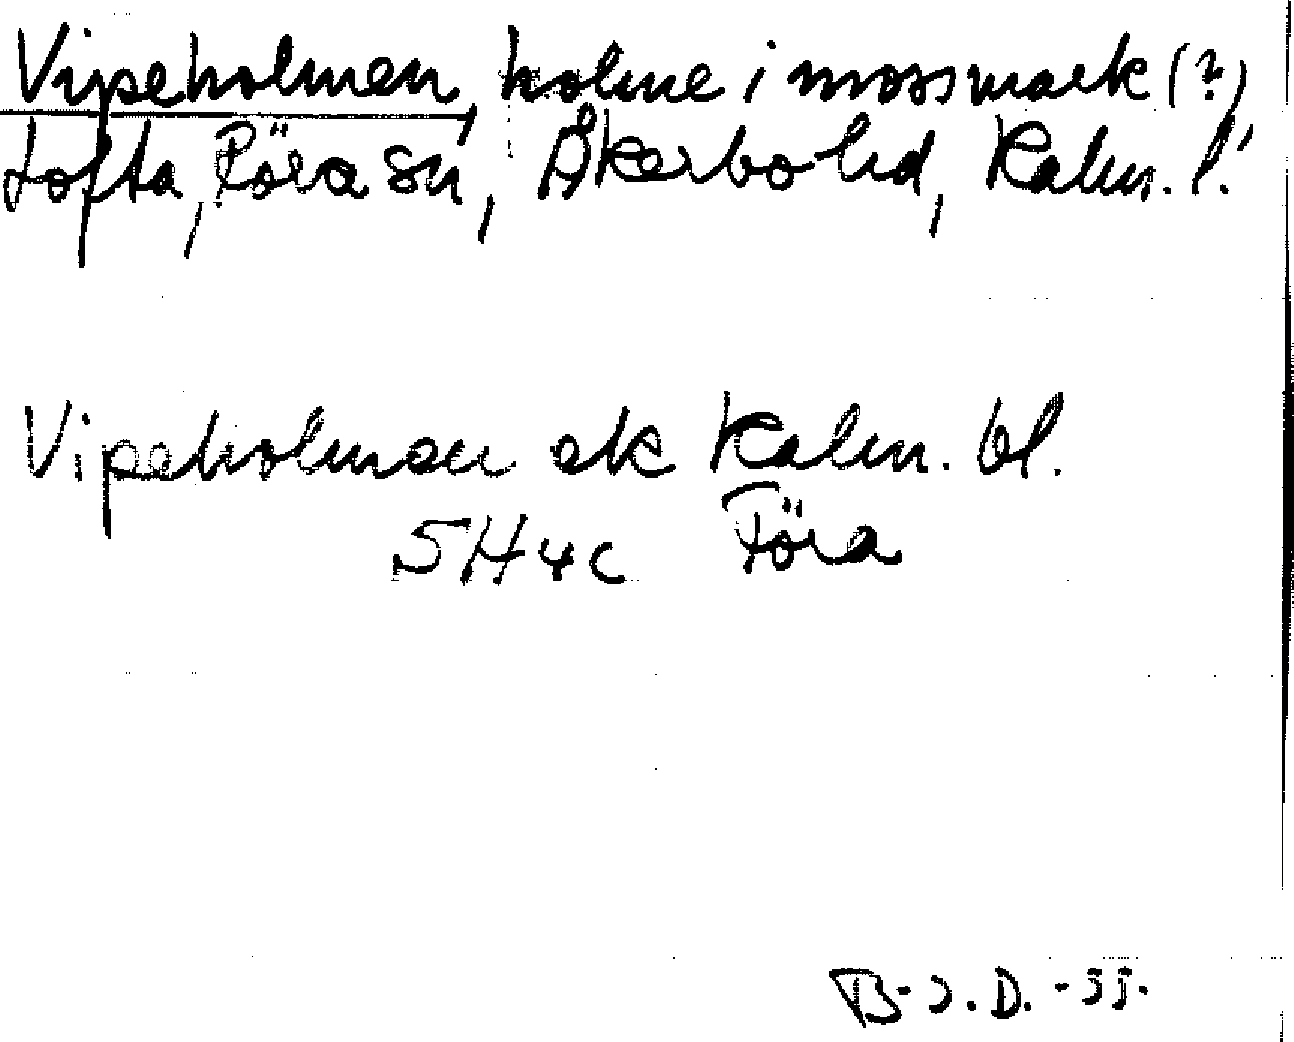 Vipeholmen, holme i mossmark (?)
Lofta, Föra sn, Åkerbo hd, Kalm. l.
Vipeholmen ek Kalm. bl.
5H4c Föra
B-J.D. -55.